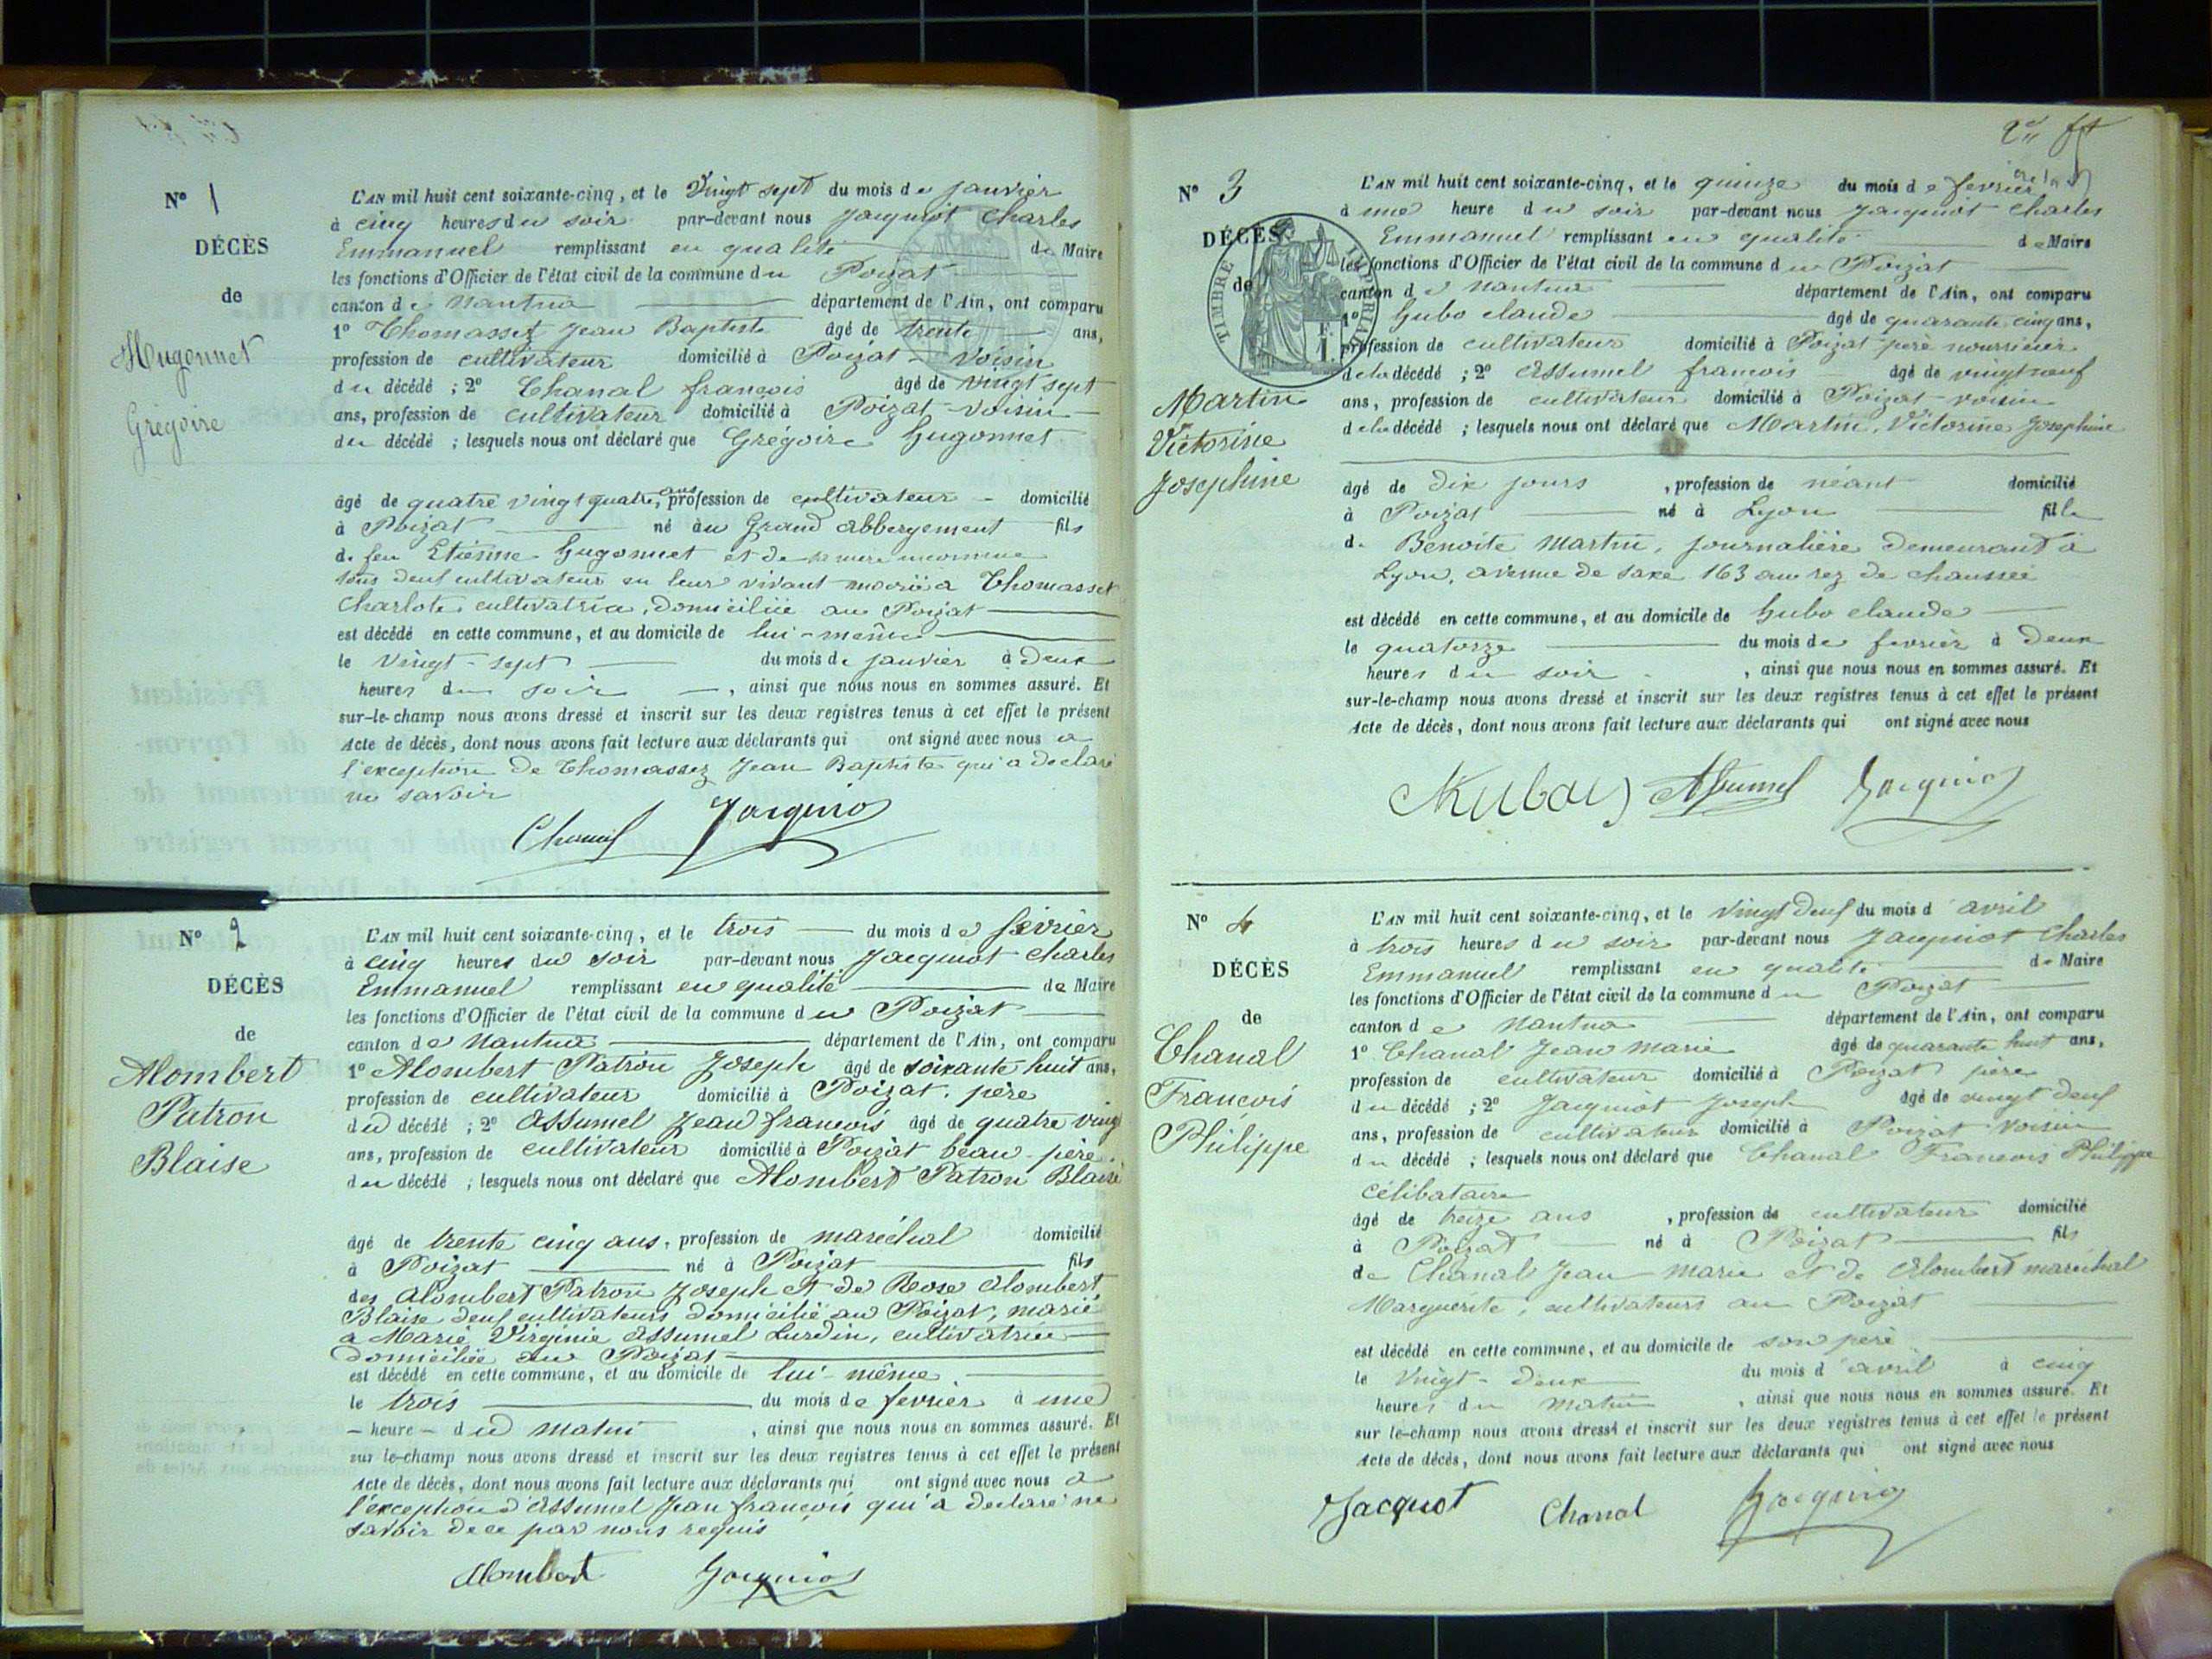 N° 1
DÉCÈS
de
Hugonnet
Grégoire
L'AN mil huit cent soixante-cinq, et le Vingt sept du mois de janvier
à cinq heures du soir par-devant nous Jacquiot Charles
Emmanuel remplissant en qualité de Maire
les fonctions d'Officier de l'état civil de la commune du Poizat
canton de Nantua département de l'Ain, ont comparu
1° Thomasset Jean Baptiste âgé de trente ans,
profession de cultivateur domicilié à Poizat - voisin
du décédé ; 2° Chanal françois âgé de vingt sept
ans, profession de cultivateur domicilié à Poizat - voisin
du décédé ; lesquels nous ont déclaré que Grégoire Hugonnet
âgé de quatre vingt quatre ans, profession de cultivateur domicilié
à Poizat né au Grand abbergement fils
de feu Etienne Hugonnet et de sa mere inconnue
tous deux cultivateurs en leur vivant marié à Thomasset
Charlote cultivatrice, domiciliée au Poizat
est décédé en cette commune, et au domicile de lui-même
le Vingt-sept du mois de janvier à deux
heures du soir, ainsi que nous nous en sommes assuré. Et
sur-le-champ nous avons dressé et inscrit sur les deux registres tenus à cet effet le présent
Acte de décès, dont nous avons fait lecture aux déclarants qui ont signé avec nous a
l'exception de Thomassez Jean Baptiste qui a declaré
ne savoir
Chanal Jacquiot
N° 2
DÉCÈS
de
Alombert
Patron
Blaise
L'AN mil huit cent soixante-cinq, et le trois du mois de février
à cinq heures du soir par-devant nous Jacquiot Charles
Emmanuel remplissant en qualité de Maire
les fonctions d'Officier de l'état civil de la commune du Poizat
canton de Nantua département de l'Ain, ont comparu
1° Alombert Patron Joseph âgé de soixante huit ans,
profession de cultivateur domicilié à Poizat. père
du décédé ; 2° Assumel Jean françois âgé de quatre vingt
ans, profession de cultivateur domicilié à Poizat beau-père.
du décédé ; lesquels nous ont déclaré que Alombert Patron Blaise
âgé de trente cinq ans, profession de maréchal domicilié
à Poizat né à Poizat fils
des Alombert Patron Joseph et de Rose Alombert
Blaise deux cultivateurs domicilié au Poizat, marié
a Marie Virginie Assumel Lurdin, cultivatrice
domiciliée au Poizat
est décédé en cette commune, et au domicile de lui-même
le trois du mois de fevrier à une
- heure - du matin, ainsi que nous nous en sommes assuré. Et
sur le-champ nous avons dressé et inscrit sur les deux registres tenus à cet effet le présent
Acte de décès, dont nous avons fait lecture aux déclarants qui ont signé avec nous a
l'exception d'Assumel Jean françois qui a declaré ne
savoir de ce par nous requis
Alombert Jacquiot
N° 3
DÉCÈS
de
TIMBRE IMPERIAL
Martin
Victorine
Josephine
L'AN mil huit cent soixante-cinq, et le quinze du mois de fevrier
à une heure du soir par-devant nous Jacquiot Charles
Emmanuel remplissant en qualité de Maire
les fonctions d'Officier de l'état civil de la commune du Poizat
canton de Nantua département de l'Ain, ont comparu
1° Hubo claude âgé de quarante cinq ans,
profession de cultivateur domicilié à Poizat père nourricier
de la décédé ; 2° Assumel francois âgé de vingt neuf
ans, profession de cultivateur domicilié à Poizat voisin
de la décédé ; lesquels nous ont déclaré que Martin, Victorine Josephine
âgé de dix jours, profession de néant domicilié
à Poizat né à Lyon fille
de Benoite Martin, journalière demeurant à
Lyon, avenue de saxe 163 au rez de chaussée
est décédé en cette commune, et au domicile de Hubo claude
le quatorze du mois de fevrier à deux
heures du soir, ainsi que nous nous en sommes assuré. Et
sur-le-champ nous avons dressé et inscrit sur les deux registres tenus à cet effet le présent
Acte de décès, dont nous avons fait lecture aux déclarants qui ont signé avec nous
Assumel Jacquiot
N° 4
DÉCÈS
de
Chanal
Francois
Philippe
L'AN mil huit cent soixante-cinq, et le vingt deux du mois d'avril
à trois heures du soir par-devant nous Jacquiot Charles
Emmanuel remplissant en qualité de Maire
les fonctions d'Officier de l'état civil de la commune du Poizat
canton de Nantua département de l'Ain, ont comparu
1° Chanal Jean Marie âgé de quarante huit ans,
profession de cultivateur domicilié à Poizat père
du décédé ; 2° Jacquiot Joseph âgé de vingt deux
ans, profession de cultivateur domicilié à Poizat voisin
du décédé ; lesquels nous ont déclaré que Chanal Francois Philippe
célibataire
âgé de treize ans, profession de cultivateur domicilié
à Poizat né à Poizat fils
de Chanal Jean Marie et de Alombert maréchal
Marguerite, cultivateurs au Poizat
est décédé en cette commune, et au domicile de son père
le Vingt-deux du mois d'avril à cinq
heures du matin, ainsi que nous nous en sommes assuré. Et
sur le-champ nous avons dressé et inscrit sur les deux registres tenus à cet effet le présent
Acte de décès, dont nous avons fait lecture aux déclarants qui ont signé avec nous
Jacquot Chanal Jacquiot